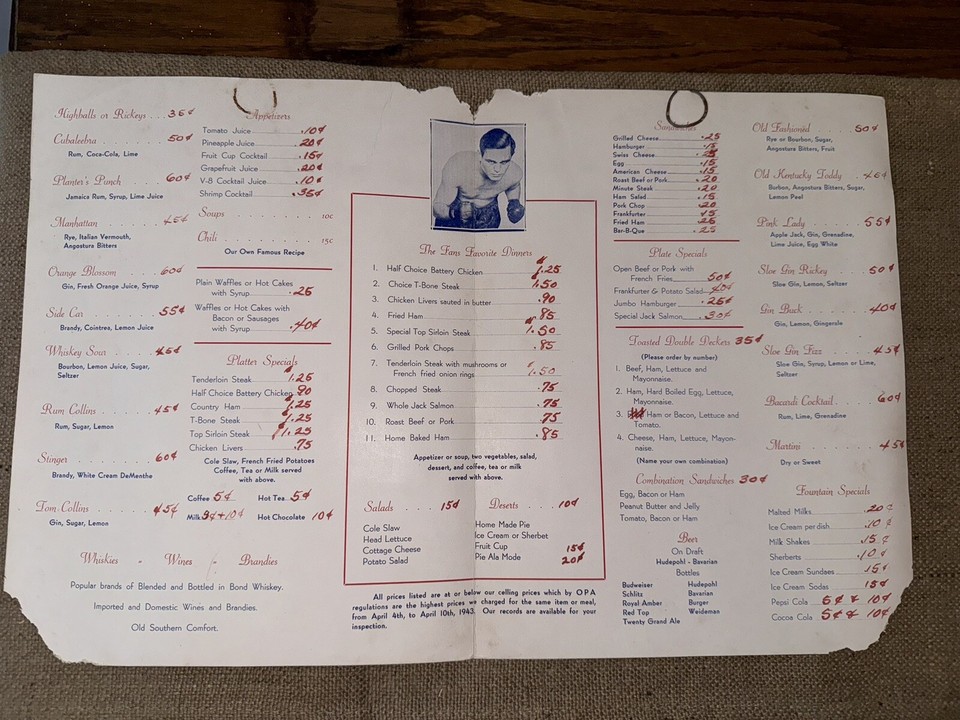 Highballs or Rickeys . . . 35¢
Cubalebra . . . . . 50¢
Rum, Coca-Cola, Lime
Planter's Punch . . . . 60¢
Jamaica Rum, Syrup, Lime Juice
Manhattan . . . . . 45¢
Rye, Italian Vermouth,
Angostura Bitters
Orange Blossom . . . . 60¢
Gin, Fresh Orange Juice, Syrup
Side Car . . . . . 55¢
Brandy, Cointreo, Lemon Juice
Whiskey Sour . . . . 45¢
Bourbon, Lemon Juice, Sugar,
Seltzer
Rum Collins . . . . 45¢
Rum, Sugar, Lemon
Stinger . . . . . 60¢
Brandy, White Cream DeMenthe
Tom Collins . . . . 45¢
Gin, Sugar, Lemon
Whiskies - Wines - Brandies
Popular brands of Blended and Bottled in Bond Whiskey.
Imported and Domestic Wines and Brandies.
Old Southern Comfort.
Appetizers
Tomato Juice .10¢
Pineapple Juice .20¢
Fruit Cup Cocktail .15¢
Grapefruit Juice .20¢
V-8 Cocktail Juice .10¢
Shrimp Cocktail .35¢
Soups . . . . . 10c
Chili . . . . . 15c
Our Own Famous Recipe
Plain Waffles or Hot Cakes
with Syrup .25
Waffles or Hot Cakes with
Bacon or Sausages
with Syrup .40¢
Platter Specials
Tenderloin Steak 1.25
Half Choice Battery Chicken .90
Country Ham 1.25
T-Bone Steak 1.25
Top Sirloin Steak 1.25
Chicken Livers .75
Cole Slaw, French Fried Potatoes
Coffee, Tea or Milk served
with above.
Coffee 5¢ Hot Tea 5¢
Milk 9¢ + 10¢ Hot Chocolate 10¢
The Fans Favorite Dinners
1. Half Choice Battery Chicken 1.25
2. Choice T-Bone Steak 1.50
3. Chicken Livers sauted in butter .90
4. Fried Ham .85
5. Special Top Sirloin Steak 1.50
6. Grilled Pork Chops .85
7. Tenderloin Steak with mushrooms or
French fried onion rings 1.50
8. Chopped Steak .75
9. Whole Jack Salmon .75
10. Roast Beef or Pork .75
11. Home Baked Ham .85
Appetizer or soup, two vegetables, salad,
dessert, and coffee, tea or milk
served with above.
Salads . . . . 15¢
Cole Slaw
Head Lettuce
Cottage Cheese
Potato Salad
Deserts . . . . 10¢
Home Made Pie
Ice Cream or Sherbet
Fruit Cup 15¢
Pie Ala Mode 20¢
All prices listed are at or below our celling prices which by OPA
regulations are the highest prices we charged for the same item or meal,
from April 4th, to April 10th, 1943. Our records are available for your
inspection.
Sandwiches
Grilled Cheese .25
Hamburger .15
Swiss Cheese .25
Egg .15
American Cheese .15
Roast Beef or Pork .20
Minute Steak .20
Ham Salad .15
Pork Chop .20
Frankfurter .15
Fried Ham .25
Bar-B-Que .25
Plate Specials
Open Beef or Pork with
French Fries 50¢
Frankfurter & Potato Salad 40¢
Jumbo Hamburger .25¢
Special Jack Salmon .30¢
Toasted Double Deckers 35¢
(Please order by number)
1. Beef, Ham, Lettuce and
Mayonnaise.
2. Ham, Hard Boiled Egg, Lettuce,
Mayonnaise.
3. Ham or Bacon, Lettuce and
Tomato.
4. Cheese, Ham, Lettuce, Mayon-
naise.
(Name your own combination)
Combination Sandwiches 30¢
Egg, Bacon or Ham
Peanut Butter and Jelly
Tomato, Bacon or Ham
Beer
On Draft
Hudepohl - Bavarian
Bottles
Budweiser Hudepohl
Schlitz Bavarian
Royal Amber Burger
Red Top Weideman
Twenty Grand Ale
Old Fashioned . . . . 50¢
Rye or Bourbon, Sugar,
Angostura Bitters, Fruit
Old Kentucky Toddy . . 40¢
Burbon, Angostura Bitters, Sugar,
Lemon Peel
Pink Lady . . . . . 55¢
Apple Jack, Gin, Grenadine,
Lime Juice, Egg White
Sloe Gin Rickey . . . . 50¢
Sloe Gin, Lemon, Seltzer
Gin Buck . . . . . 40¢
Gin, Lemon, Gingerale
Sloe Gin Fizz . . . . 45¢
Sloe Gin, Syrup, Lemon or Lime,
Seltzer
Bacardi Cocktail . . . . 60¢
Rum, Lime, Grenadine
Martini . . . . . 45¢
Dry or Sweet
Fountain Specials
Malted Milks .20¢
Ice Cream per dish .10¢
Milk Shakes .15¢
Sherberts .10¢
Ice Cream Sundaes .15¢
Ice Cream Sodas 15¢
Pepsi Cola 5¢ & 10¢
Cocoa Cola 5¢ & 10¢